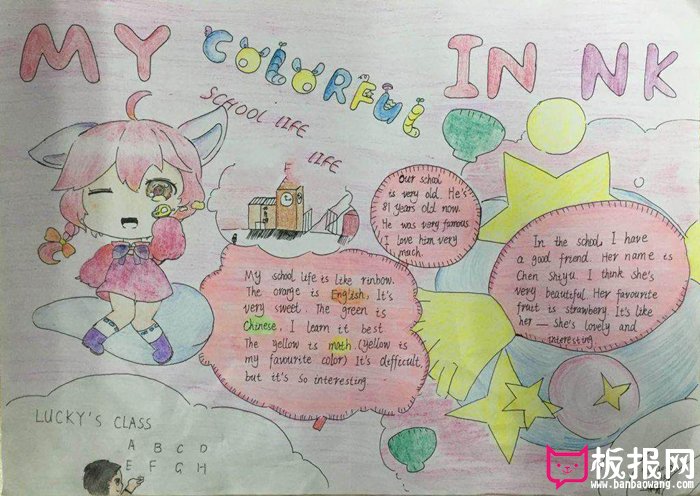 MY COLORFUL IN NK
SCHOOL LIFE
LIFE
Our school
is very old. He's
81 years old now.
He was very famous
I love him very
much.
In the school, I have
a good friend. Her name is
Chen Shiyu. I think she's
very beautiful. Her favourite
fruit is strawberry. It's like
her — she's lovely and
interesting
My school life is like rinbow.
The orange is English. It's
very sweet. The green is
Chinese. I learn it best
The yellow is math. (yellow is
my favourite color) It's deffecult,
but it's so interesting
LUCKY'S CLASS
A B C D
E F G H
板报网
www.banbaowang.com